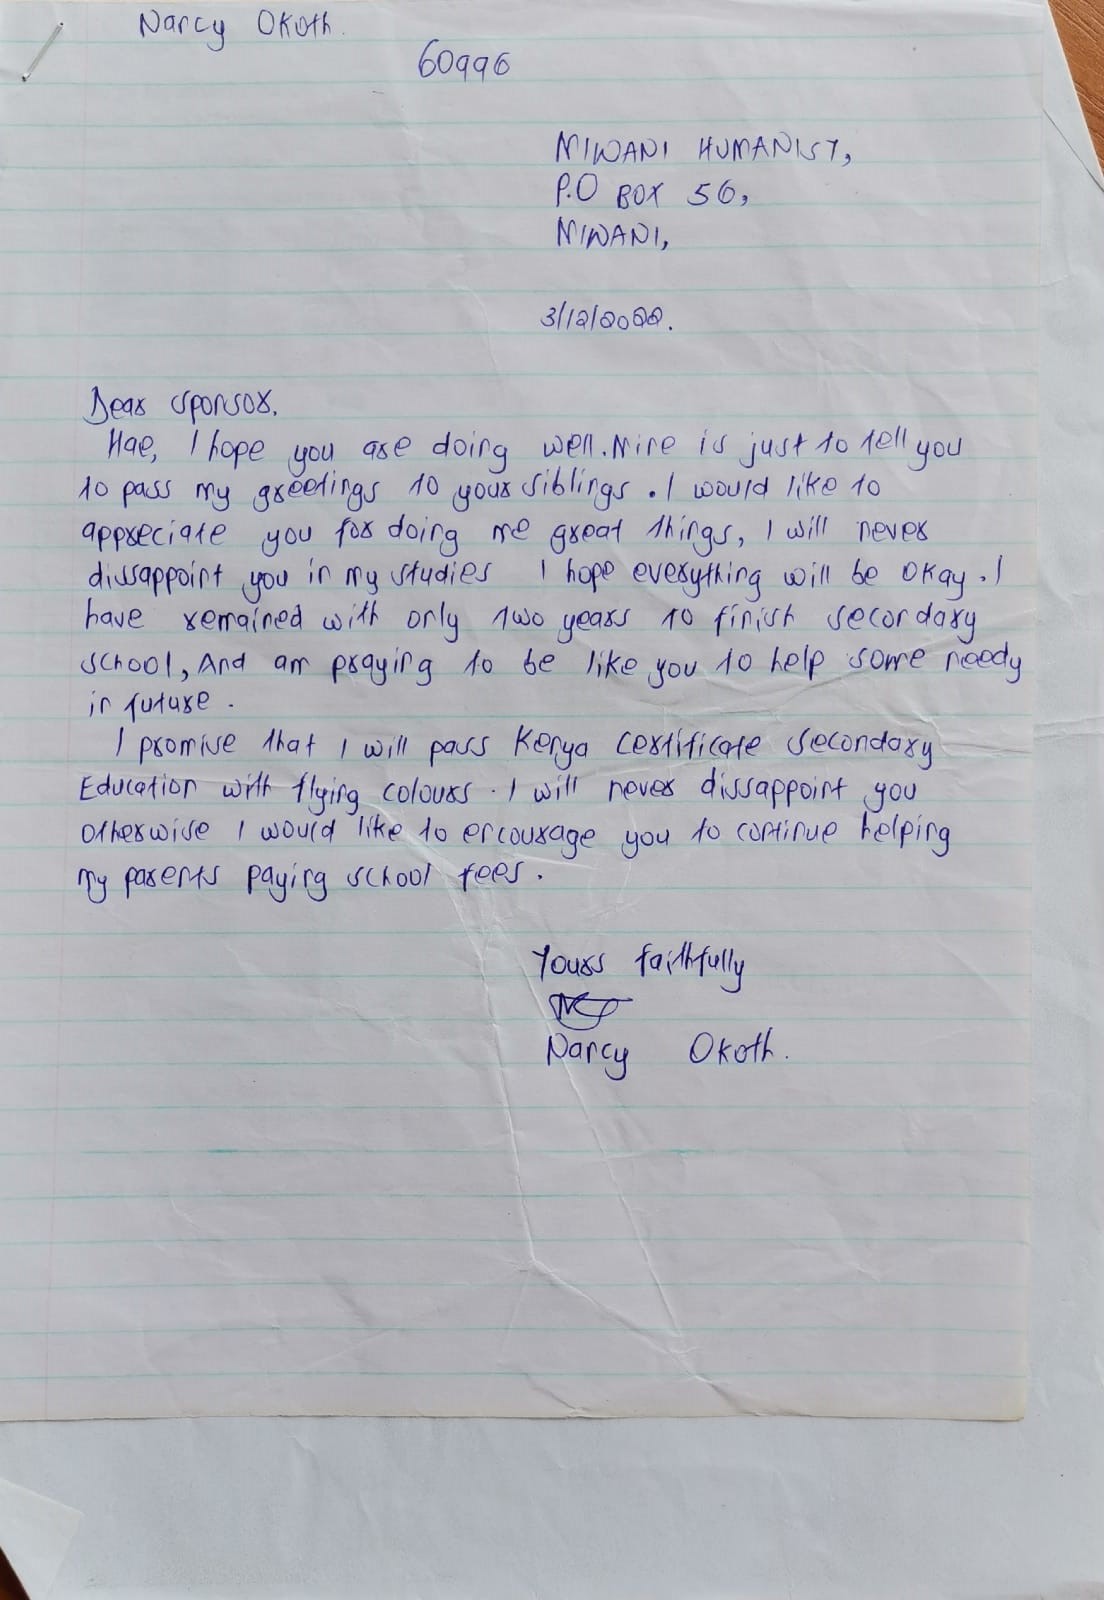 Narcy Okoth.
60996
MIWANI HUMANIST,
P.O BOX 56,
MIWANI,
3/12/2022.
Dear sponsor,
Hae, I hope you are doing well. Mine is just to tell you
to pass my greetings to your siblings. I would like to
appreciate you for doing me great things, I will never
dissappoint you in my studies I hope everything will be okay. I
have remained with only two years to finish secondary
school, And am praying to be like you to help some needy
in future.
I promise that I will pass Kenya certificate secondary
Education with flying colours. I will never dissappoint you
otherwise I would like to encourage you to continue helping
my parents paying school fees.
Yours faithfully
Narcy Okoth.